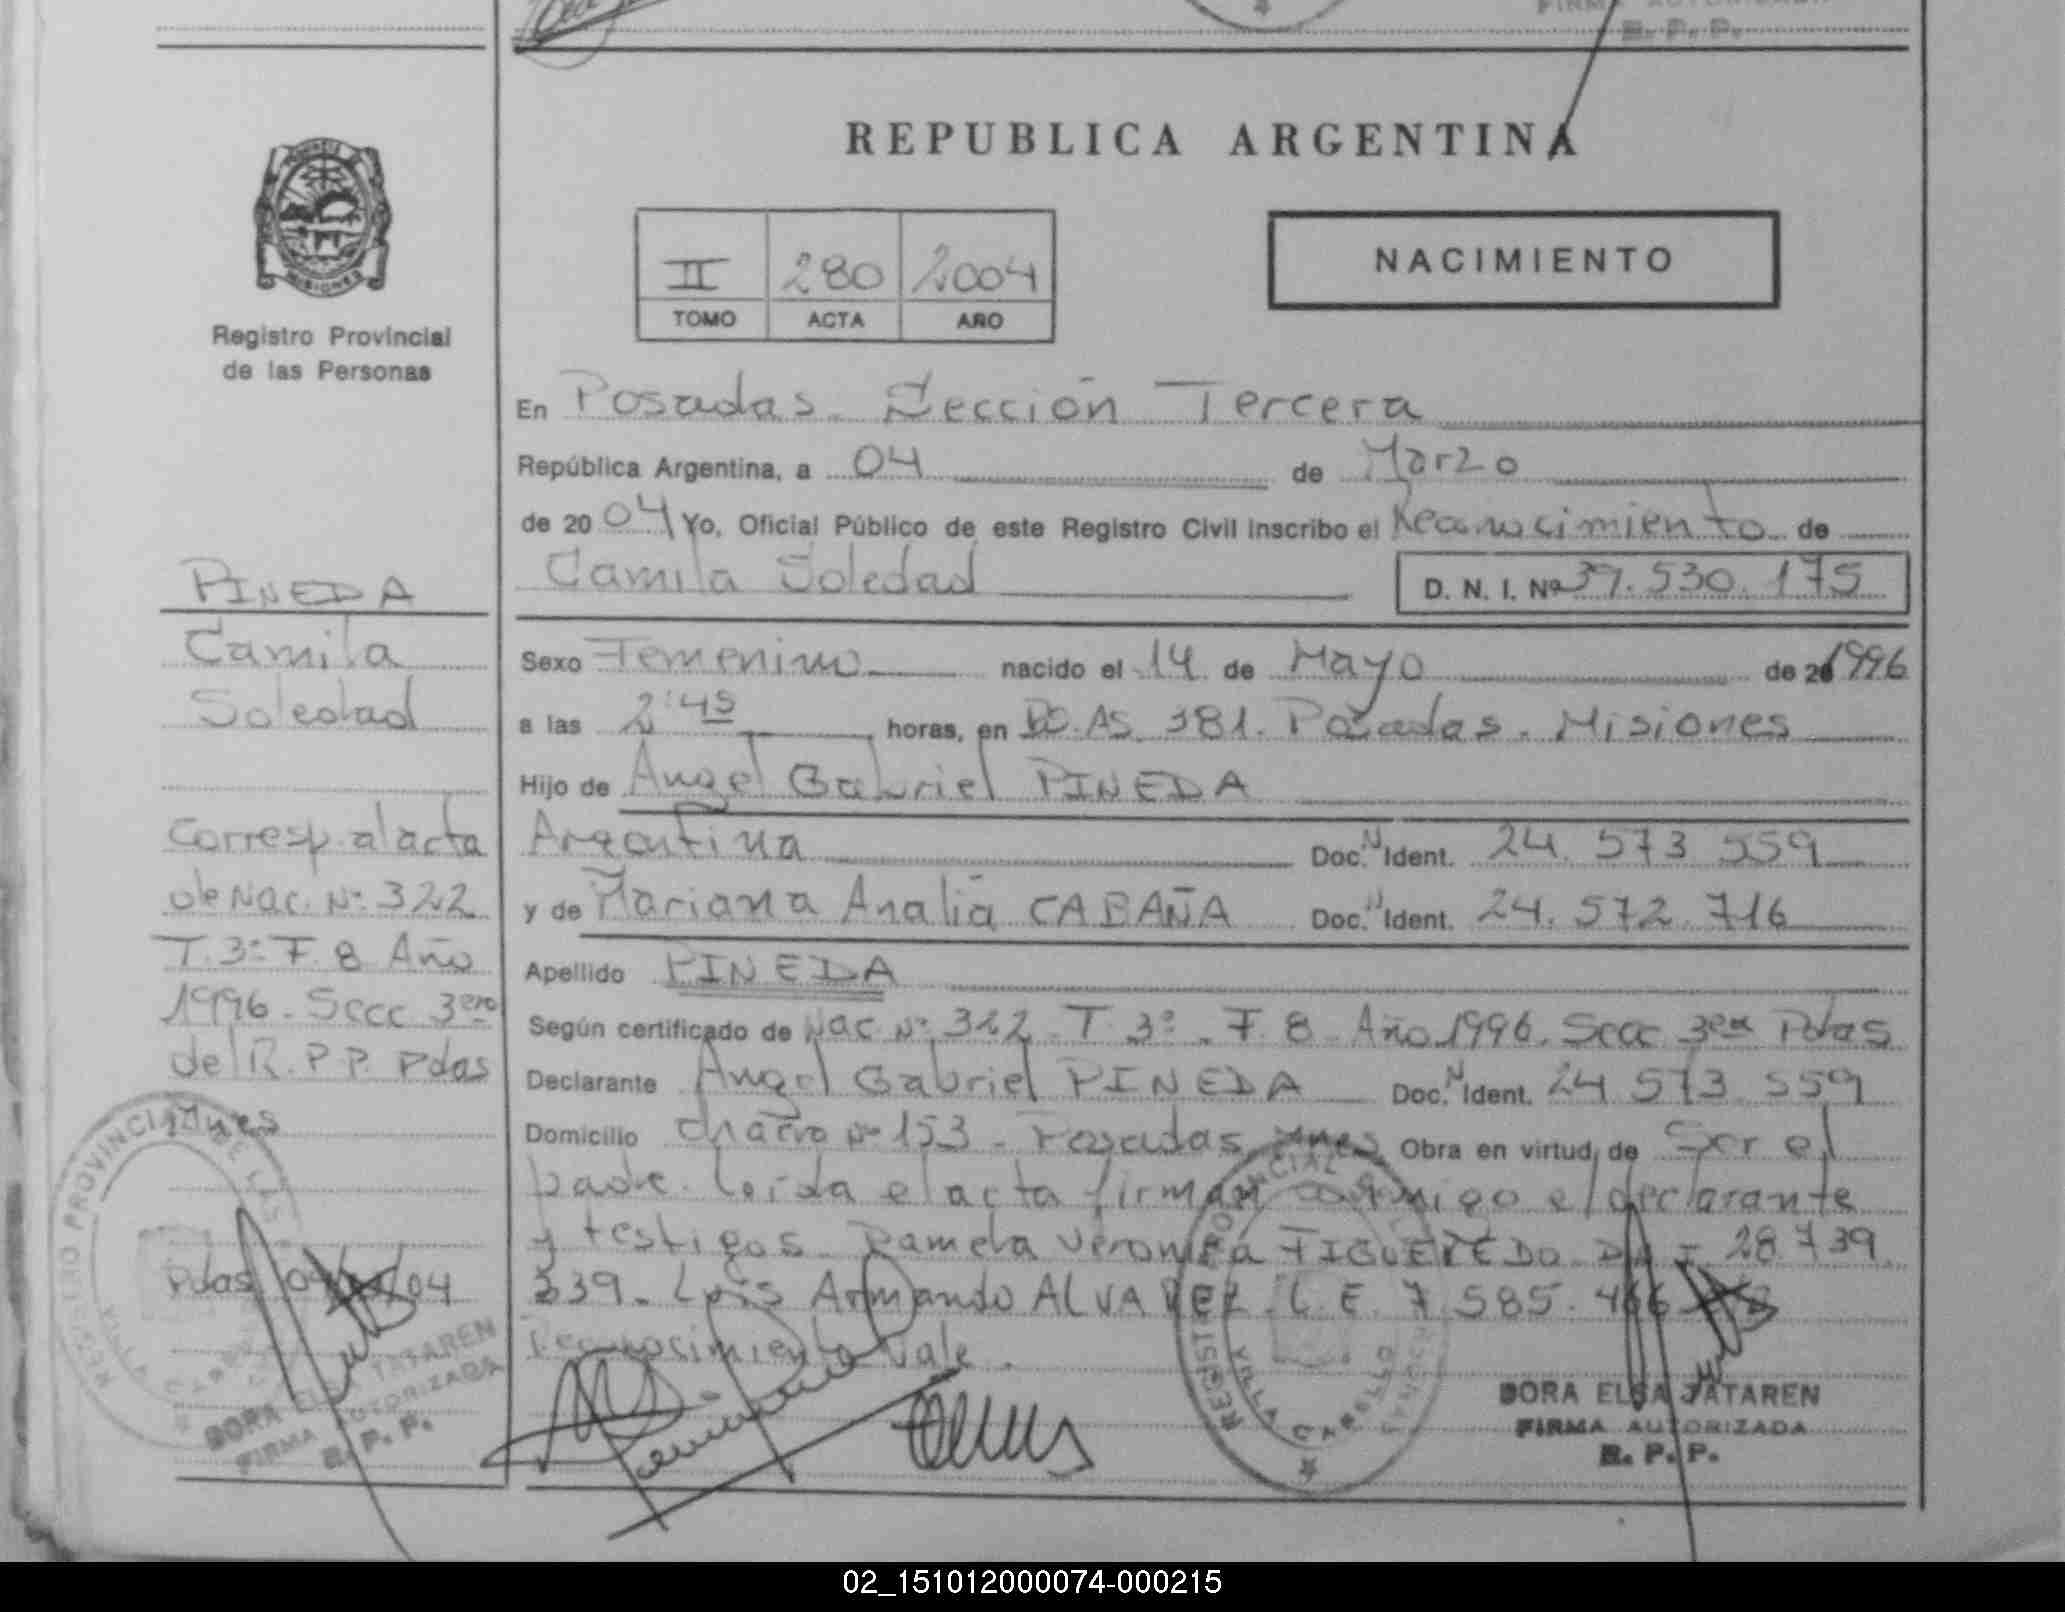 FIRMA AUTORIZADA
R. P. P.
REPUBLICA ARGENTINA
PROVINCIA DE
MISIONES
Registro Provincial
de las Personas
II 280 2004
TOMO ACTA AÑO
NACIMIENTO
En Posadas. Sección Tercera
República Argentina, a 04 de Marzo
de 2004 Yo, Oficial Público de este Registro Civil inscribo el Reconocimiento de
Camila Soledad D. N. I. Nº 39.530.175
Sexo Femenino nacido el 14 de Mayo de 1996
a las 2:45 horas, en BS.AS. 381. Posadas. Misiones
Hijo de Angel Gabriel PINEDA
Argentina Doc. N Ident. 24.573.559
y de Mariana Analía CABAÑA Doc. N Ident. 24.572.716
Apellido PINEDA
Según certificado de Nac. Nº 322. T. 3º. F. 8. Año 1996. Secc 3era Pdas
Declarante Angel Gabriel PINEDA Doc. N Ident. 24.573.559
Domicilio Chacra Nº 153 - Posadas Mnes Obra en virtud de Ser el
padre. Leída el acta firman conmigo el declarante
y testigos. Pamela Veronica FIGUEREDO DNI 28.739.
339. Luis Armando ALVAREZ. L.E. 7.585.466
Reconocimiento Vale.
DORA ELSA TATAREN
FIRMA AUTORIZADA
R. P. P.
REGISTRO PROVINCIAL DE LAS
VILLA CABELLO
PINEDA
Camila
Soledad
Corresp. al acta
de Nac. Nº 322
T. 3º F. 8 Año
1996 - Secc 3era
del R.P.P. Pdas
Mnes
REGISTRO PROVINCIAL DE LAS
VILLA CABELLO
Pdas 04/03/04
DORA ELSA TATAREN
FIRMA AUTORIZADA
R. P. P.
02_151012000074-000215